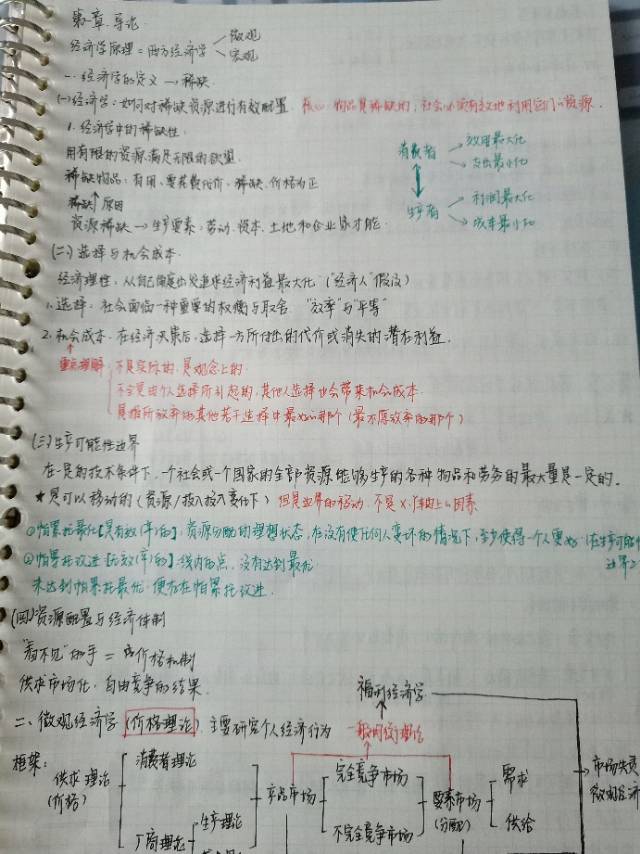 第一章 导论
经济学原理=西方经济学 微观 宏观
一. 经济学的定义 → 稀缺
(一)经济学:如何对稀缺资源进行有效配置. 核心:物品是稀缺的,社会必须有效地利用它们的资源.
1. 经济学中的稀缺性.
用有限的资源满足无限的欲望.
稀缺物品:有用、要花费代价、稀缺、价格为正
稀缺 原因
资源稀缺 → 生产要素:劳动、资本、土地和企业家才能.
消费者 → 效用最大化
→ 支出最小化
生产者 → 利润最大化
→ 成本最小化
(二)选择与机会成本.
经济理性:从自己角度出发追求经济利益最大化 ("经济人"假设)
1. 选择:社会面临一种重要的权衡与取舍 "效率"与"平等"
2. 机会成本:在经济决策后,选择一方所付出的代价或消失的潜在利益.
重点理解 不是实际的,是观念上的
不全是由个人选择所引起的,其他人选择也会带来机会成本.
是指所放弃的其他若干选择中最好的那个(最不愿放弃的那个)
(三)生产可能性边界
在一定的技术条件下,一个社会或一个国家的全部资源能够生产的各种物品和劳务的最大量是一定的.
★是可以移动的(资源/投入 变化下) 但是边界的移动,不是X、Y轴上的因素
①帕累托最优【具有效(率)的】:资源分配的理想状态,在没有使任何人变坏的情况下,至少使得一个人更好 (在生产可能性
边界上
②帕累托改进【无效(率)的】:线内的点,没有达到最优
未达到帕累托最优,便存在帕累托改进.
(四)资源配置与经济体制
"看不见"的手 = 价格机制
供求市场化,自由竞争的结果.
二、微观经济学【价格理论】:主要研究个人经济行为
福利经济学
一般均衡理论
框架:
供求理论
(价格)
消费者理论
厂商理论 生产理论
产品市场
完全竞争市场
不完全竞争市场
要素市场
(分配)
需求
供给
市场失灵
微观经济